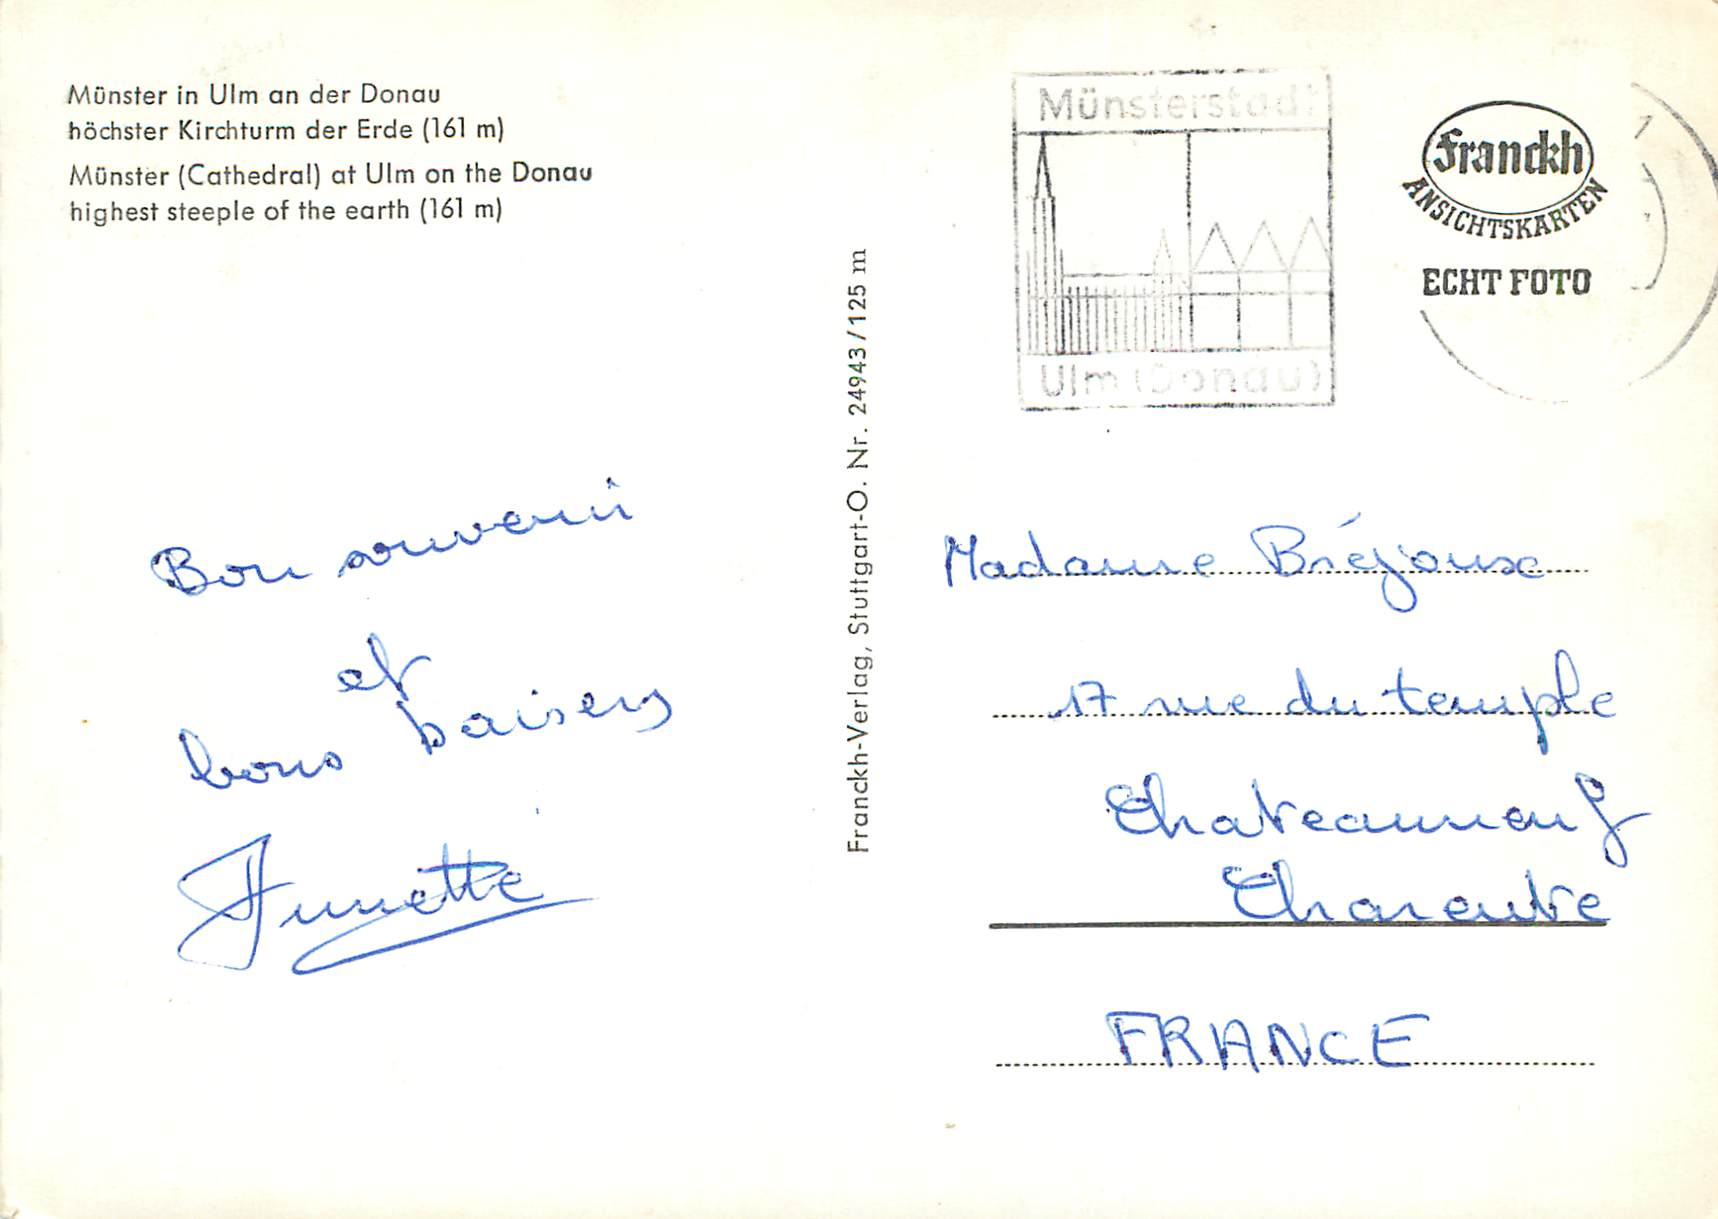 Münster in Ulm an der Donau
höchster Kirchturm der Erde (161 m)
Münster (Cathedral) at Ulm on the Donau
highest steeple of the earth (161 m)
Bon souvenir
et
bons baisers
Annette
Franckh-Verlag, Stuttgart-O. Nr. 24943/125 m
Münsterstadt
Ulm (Donau)
Franckh
ANSICHTSKARTEN
ECHT FOTO
Madame Bréjoux
17 rue du temple
Chateauneuf
Charente
FRANCE